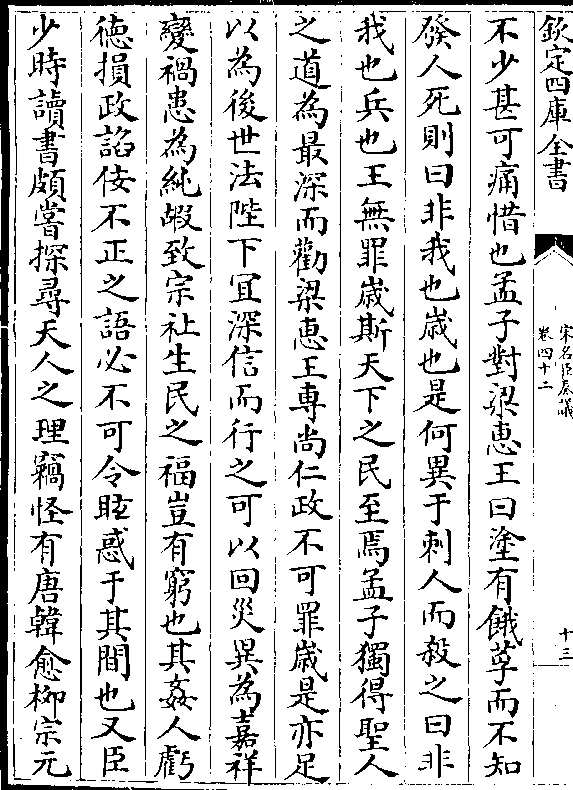 欽定四庫全書
宋名臣奏議
卷四十二
十三
不少甚可痛惜也孟子對梁惠王曰塗有餓莩而不知
發人死則曰非我也歲也是何異于刺人而殺之曰非
我也兵也王無罪歲斯天下之民至焉孟子獨得聖人
之道為最深而勸梁惠王專尚仁政不可罪歲是亦足
以為後世法陛下宜深信而行之可以回災異為嘉祥
變禍患為純嘏致宗社生民之福豈有窮也其姦人虧
徳損政諂佞不正之語必不可令眩惑于其間也又臣
少時讀書頗嘗探尋天人之理竊怪有唐韓愈柳宗元